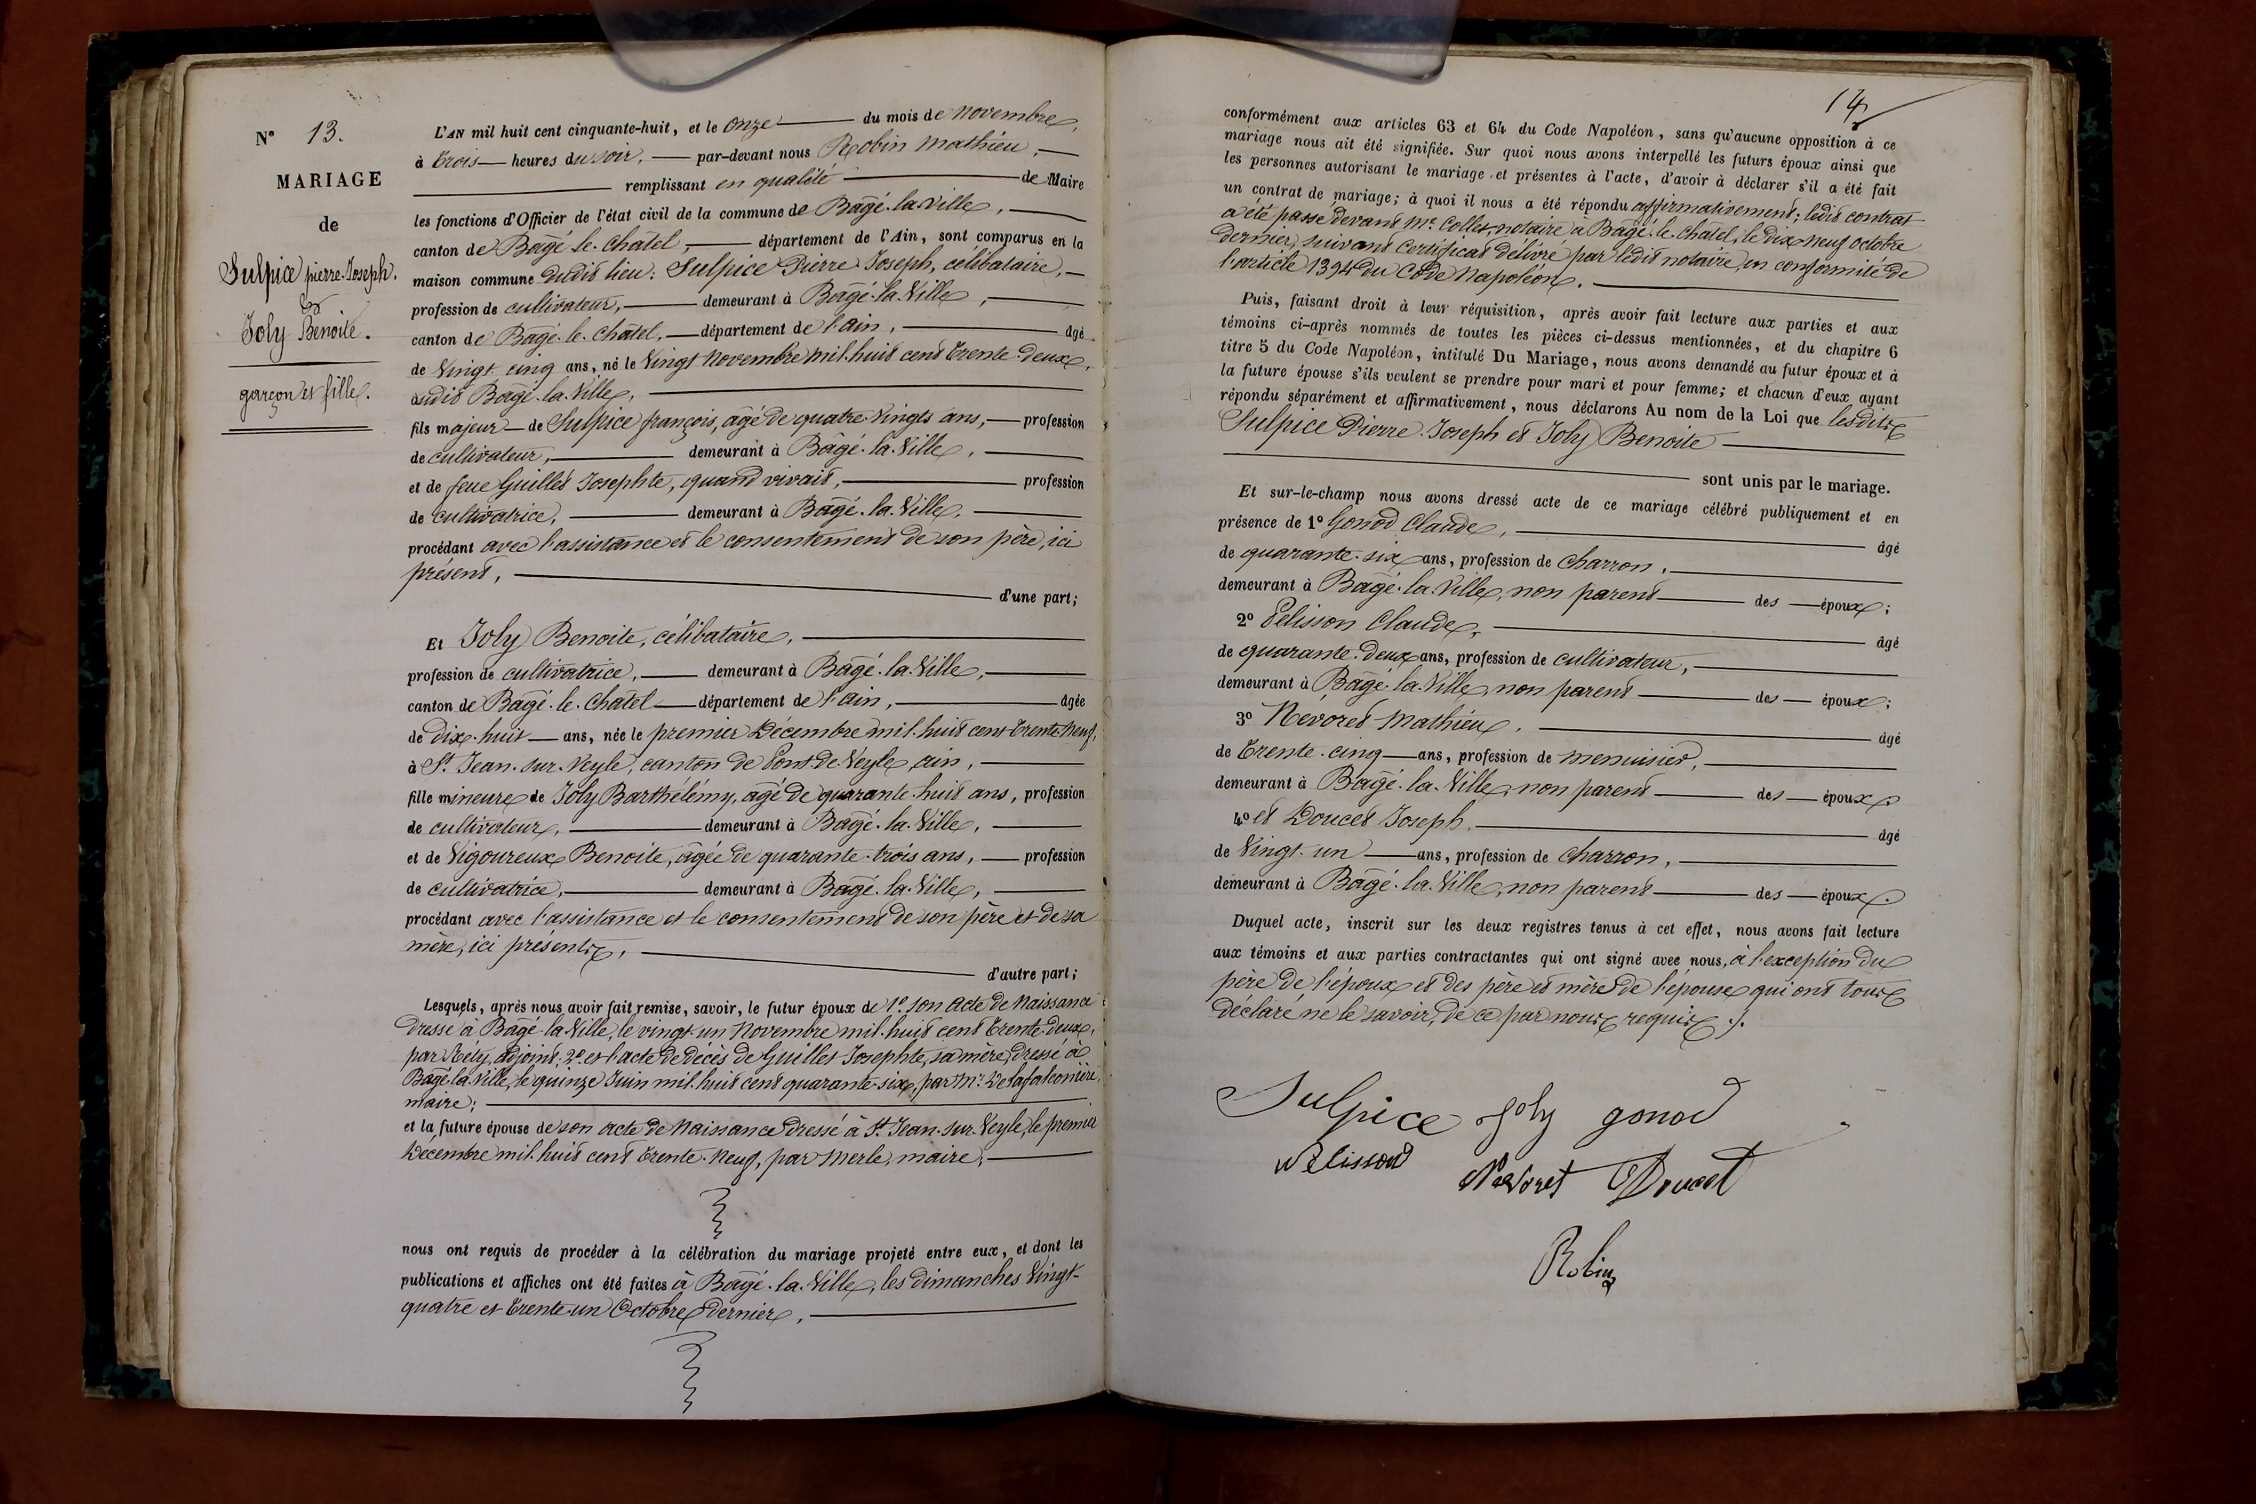 N° 13.
MARIAGE
de
Sulpice pierre-Joseph.
&
Joly Benoite.
garçon et fille.
L'AN mil huit cent cinquante-huit, et le onze du mois de Novembre,
à trois heures du soir, par-devant nous Robin Mathieu,
remplissant en qualité de Maire
les fonctions d'Officier de l'état civil de la commune de Bâgé-la-Ville,
canton de Bâgé-le-Châtel, département de l'Ain, sont comparus en la
maison commune dudit lieu: Sulpice Pierre Joseph, célibataire,
profession de cultivateur, demeurant à Bâgé-la-Ville,
canton de Bâgé-le-Châtel, département de l'ain, âgé
de Vingt-cinq ans, né le Vingt Novembre mil-huit cent trente-deux,
audit Bâgé-la-Ville,
fils majeur de Sulpice françois, âgé de quatre-Vingts ans, profession
de cultivateur, demeurant à Bâgé-la-Ville,
et de feue Guillet Josephte, quand vivait, profession
de cultivatrice, demeurant à Bâgé-la-Ville.
procédant avec l'assistance et le consentement de son père, ici
présent, d'une part;
Et Joly Benoite, célibataire,
profession de cultivatrice, demeurant à Bâgé-la-Ville,
canton de Bâgé-le-Châtel département de l'ain, âgée
de Dix-huit ans, née le premier Décembre mil-huit cent trente-Neuf,
à St Jean-sur-Veyle, canton de Pont-de-Veyle, ain,
fille mineure de Joly Barthélémy, âgé de quarante-huit ans, profession
de cultivateur, demeurant à Bâgé-la-Ville,
et de Vigoureux Benoite, âgée de quarante-trois ans, profession
de cultivatrice, demeurant à Bâgé-la-Ville,
procédant avec l'assistance et le consentement de son père et de sa
mère, ici présents, d'autre part;
Lesquels, après nous avoir fait remise, savoir, le futur époux de 1° son acte de Naissance
dressé à Bâgé-la-Ville, le vingt-un Novembre mil-huit cent trente-deux,
par Rély, adjoint; 2° et l'acte de Décès de Guillet Josephte, sa mère, dressé à
Bâgé-la-Ville, le quinze Juin mil-huit cent quarante-six, par Mr Delafalconière,
maire;
et la future épouse de son acte de Naissance dressé à St Jean-sur-Veyle, le premier
Décembre mil-huit cent trente-Neuf, par Merle, maire;
nous ont requis de procéder à la célébration du mariage projeté entre eux, et dont les
publications et affiches ont été faites à Bâgé-la-Ville, les dimanches Vingt-
quatre et trente-un Octobre dernier,
14
conformément aux articles 63 et 64 du Code Napoléon, sans qu'aucune opposition à ce
mariage nous ait été signifiée. Sur quoi nous avons interpellé les futurs époux ainsi que
les personnes autorisant le mariage et présentes à l'acte, d'avoir à déclarer s'il a été fait
un contrat de mariage; à quoi il nous a été répondu affirmativement; ledit contrat
a été passé devant Mr. Collet, notaire à Bâgé-le-Châtel, le dix-neuf octobre
dernier, suivant certificat délivré par ledit notaire, en conformité de
l'article 1394 du Code Napoléon.
Puis, faisant droit à leur réquisition, après avoir fait lecture aux parties et aux
témoins ci-après nommés de toutes les pièces ci-dessus mentionnées, et du chapitre 6
titre 5 du Code Napoléon, intitulé Du Mariage, nous avons demandé au futur époux et à
la future épouse s'ils veulent se prendre pour mari et pour femme; et chacun d'eux ayant
répondu séparément et affirmativement, nous déclarons Au nom de la Loi que lesdits
Sulpice Pierre-Joseph et Joly Benoite
sont unis par le mariage.
Et sur-le-champ nous avons dressé acte de ce mariage célébré publiquement et en
présence de 1° Gonod Claude, âgé
de quarante-six ans, profession de charron,
demeurant à Bâgé-la-Ville, non parent des époux;
2° Pelisson Claude, âgé
de quarante-deux ans, profession de cultivateur,
demeurant à Bâgé-la-Ville, non parent des époux;
3° Névoret Mathieu, âgé
de trente-cinq ans, profession de menuisier,
demeurant à Bâgé-la-Ville, non parent des époux;
4° et Doucet Joseph, âgé
de Vingt-un ans, profession de charron,
demeurant à Bâgé-la-Ville, non parent des époux.
Duquel acte, inscrit sur les deux registres tenus à cet effet, nous avons fait lecture
aux témoins et aux parties contractantes qui ont signé avec nous, à l'exception du
père de l'époux et des père et mère de l'épouse qui ont tous
déclaré ne le savoir, de ce par nous requis.
Sulpice Joly gonod
pelisson Nevoret Doucet
Robin